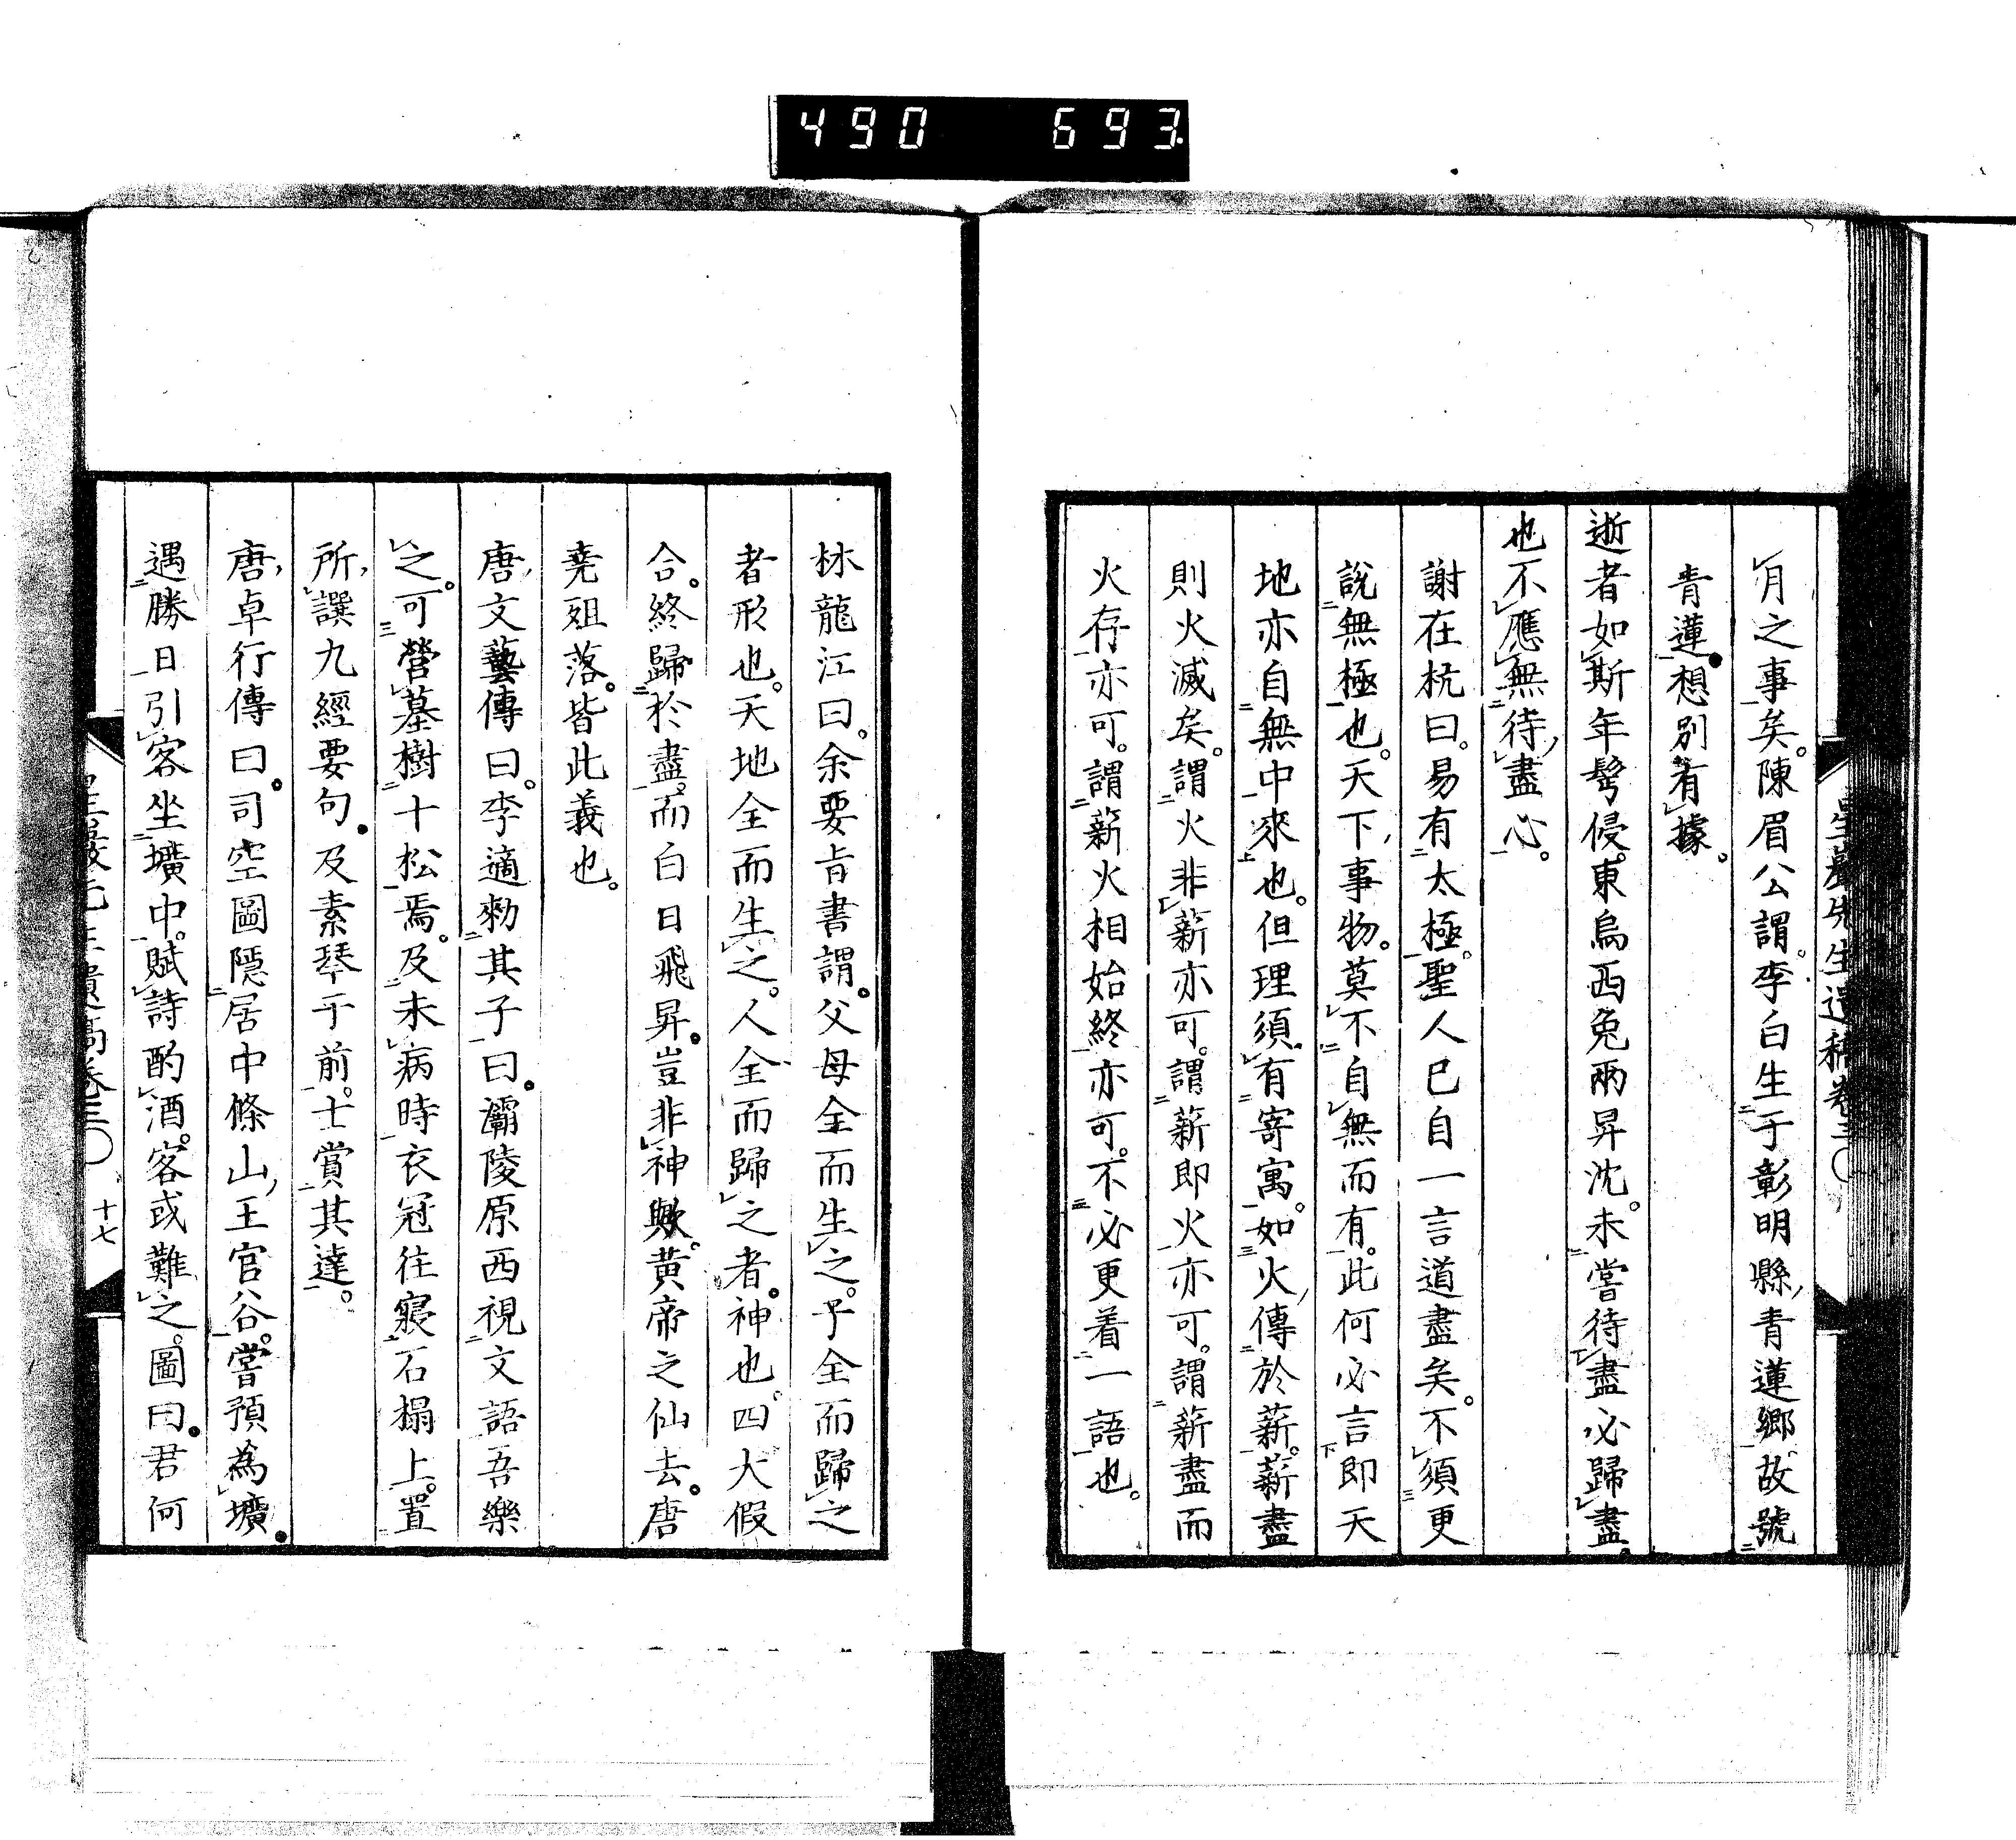 490 693
月之事矣。陳眉公謂。李白生于彰明縣青蓮鄉。故號
青蓮。想別有據。
逝者如斯年髩侵。東烏西兔兩昇沈。未嘗待盡必歸盡。
也不應無待盡心。
謝在杭曰。易有太極。聖人已自一言道盡矣。不須更
說無極也。天下事物。莫不自無而有。此何必言即天
地亦自無中來也。但理須有寄寓。如火傳於薪。薪盡
則火滅矣。謂火非薪亦可。謂薪即火亦可。謂薪盡而
火存亦可。謂薪火相始終亦可。不必更着一語也。
林龍江曰。余要旨書謂。父母全而生之。子全而歸之
者形也。天地全而生之。人全而歸之者。神也。四大假
合。終歸於盡。而白日飛昇。豈非神歟。黃帝之仙去。唐
堯殂落。皆此義也。
唐文藝傳曰。李適勑其子曰。灞陵原西視文語吾樂
之。可營墓樹十松焉。及未病時衣冠往寢石榻上。置
所譔九經要句。及素琴于前。士賞其達。
唐卓行傳曰。司空圖隱居中條山王官谷。嘗預為壙。
遇勝日引客坐壙中。賦詩酌酒。客或難之。圖曰。君何
十七